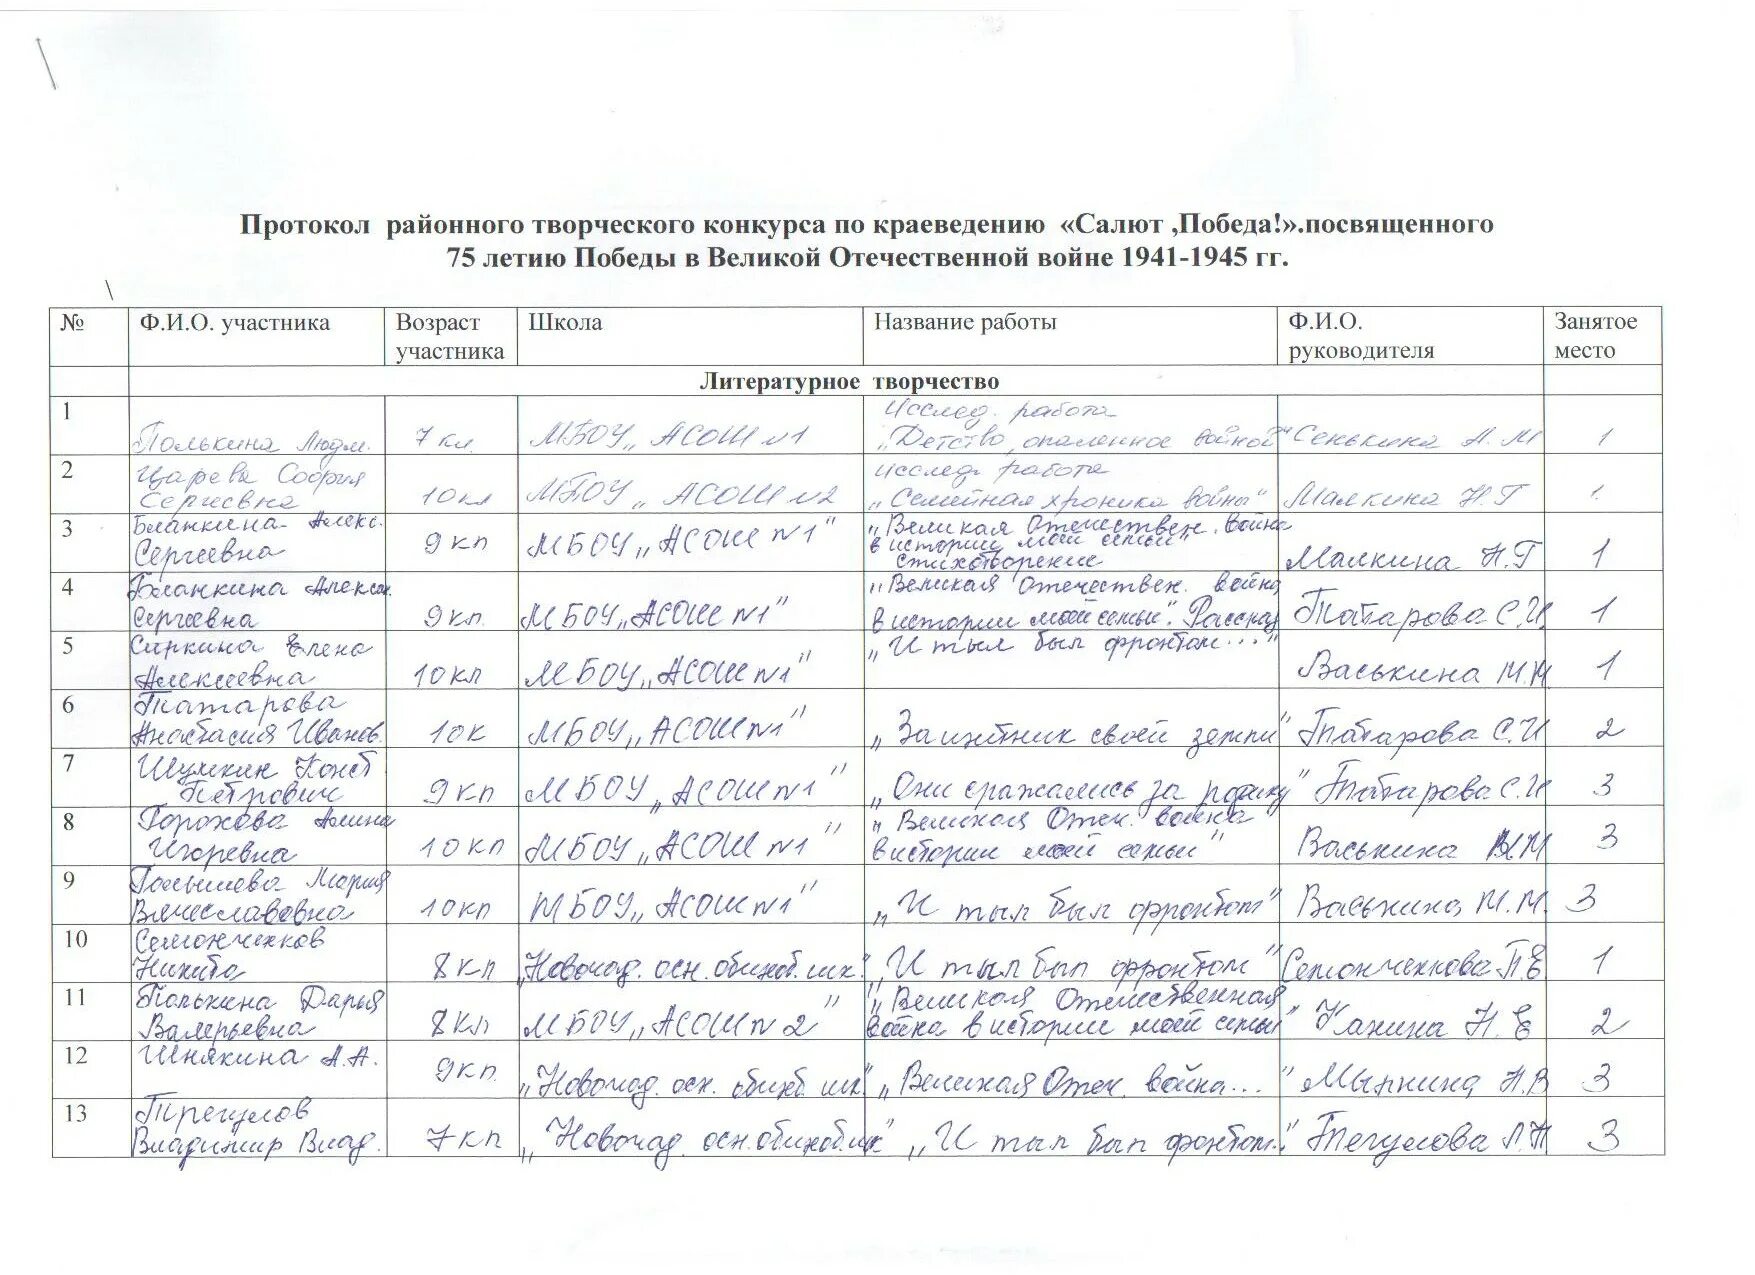 Протокол районного творческого конкурса по краеведению «Салют ,Победа!».посвященного
75 летию Победы в Великой Отечественной войне 1941-1945 гг.
№ Ф.И.О. участника Возраст участника Школа Название работы Ф.И.О. руководителя Занятое место
Литературное творчество
1 Полькина Людм. 7 кл. МБОУ „АСОШ №1 Исслед. работа „Детство, опаленное войной" Сенькина А. М 1
2 Царева София Сергеевна 10 кл МБОУ „АСОШ №2 Исслед. работа „Семейная хроника войны" Малкина Н Г 1.
3 Бланкина Алекс. Сергеевна 9 кл МБОУ „АСОШ №1" „Великая Отечествен. война в истории моей семьи" стихотворение Малкина Н.Г 1
4 Бланкина Алексан. Сергеевна 9 кл. МБОУ „АСОШ №1" „Великая Отечествен. война в истории моей семьи". Рассказ Татарова С.И. 1
5 Сиркина Елена Алексеевна 10 кл МБОУ „АСОШ №1" „И тыл был фронтом..." Васькина М.М. 1
6 Татарова Анастасия Иванов. 10 к МБОУ „АСОШ №1" „Защитник своей земли" Татарова С.И 2
7 Шумкин Конст Петрович 9 кл МБОУ „АСОШ №1" „Они сражались за родину" Татарова С.И 3
8 Горохова Алина Игоревна 10 кл МБОУ „АСОШ №1" „Великая Отеч. война в истории моей семьи" Васькина ММ 3
9 Мария Вячеславовна 10 кл МБОУ „АСОШ №1" „И тыл был фронтом" Васькина М.М. 3
10 Семончекков Никита 8 кл „Новочад. осн. общеоб. шк." „И тыл был фронтом" Семончеккова П.Е 1
11 Полькина Дарья Валерьевна 8 кл МБОУ „АСОШ №2" „Великая Отечественная война в истории моей семьи" Канина Н. Е 2
12 Шнякина А.А. 9 кл. „Новочад. осн. общеоб. шк" „Великая Отеч. война..." Мыркина Н.В 3
13 Трегулов Владимир Влад. 7 кл „Новочад. осн. общеоб. шк" „И тыл был фронтом." Тегулова Л.Н 3